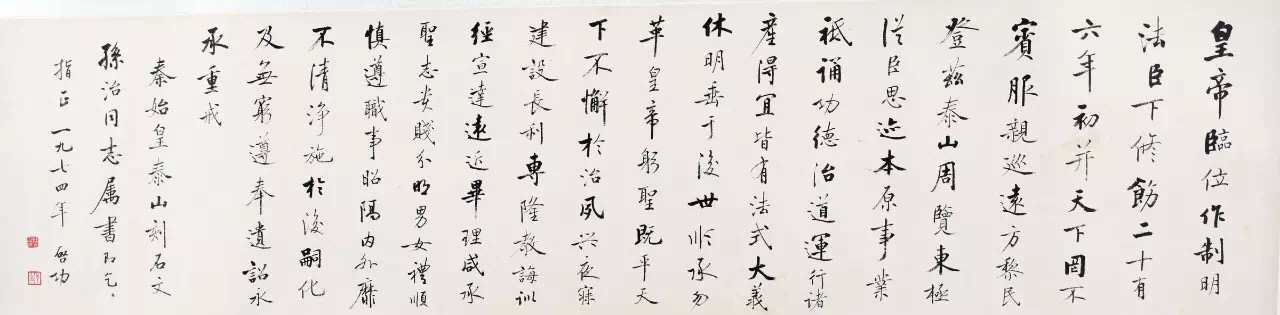 皇帝臨位作制明
法臣下修飭二十有
六年初并天下罔不
賓服親巡遠方黎民
登茲泰山周覽東極
從臣思迹本原事業
祗誦功德治道運行諸
產得宜皆有法式大義
休明垂于後世順承勿
革皇帝躬聖既平天
下不懈於治夙興夜寐
建設長利專隆教誨訓
經宣達遠近畢理咸承
聖志貴賤分明男女禮順
慎遵職事昭隔內外靡
不清淨施於後嗣化
及無窮遵奉遺詔永
承重戒
秦始皇泰山刻石文
孫治同志属書即乞
指正一九七四年 啓功